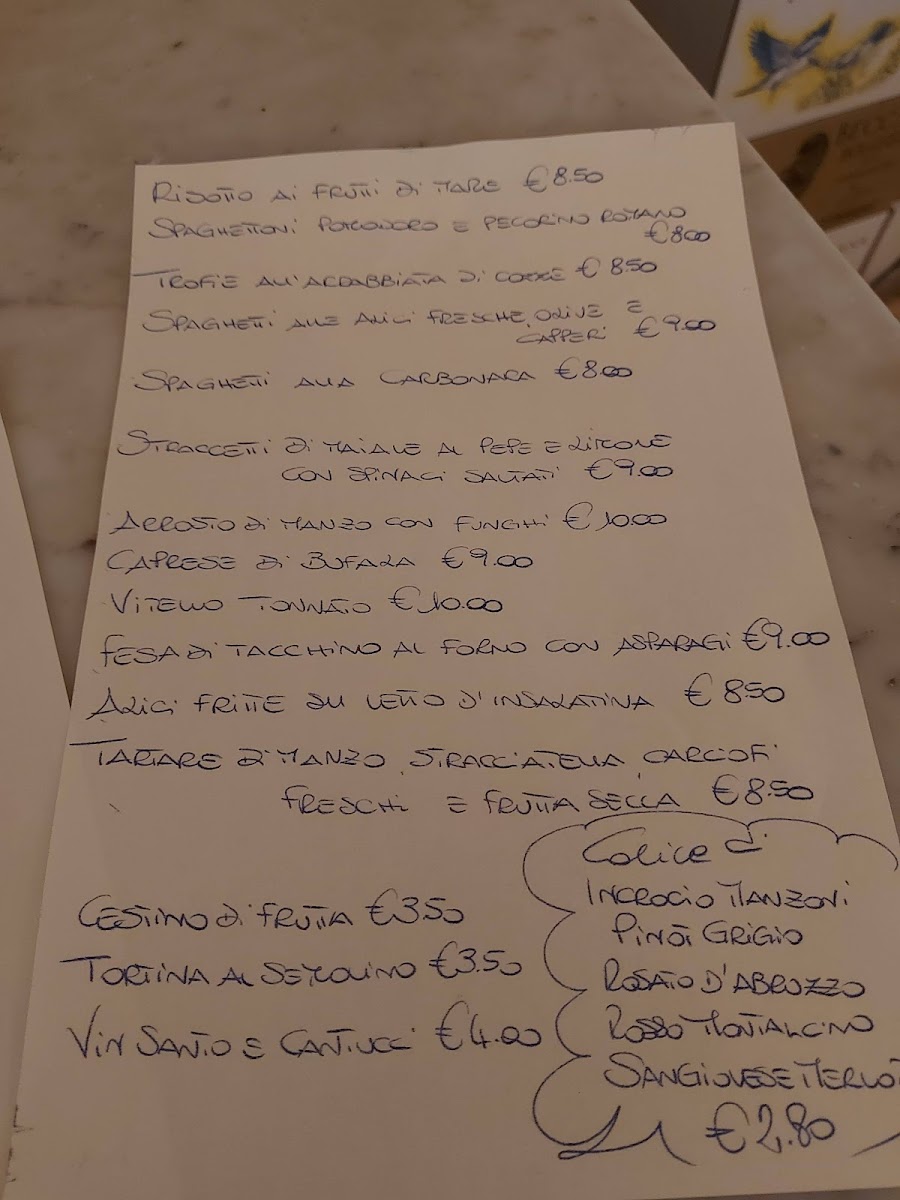 RISOTTO AI FRUTTI DI MARE €8.50
SPAGHETTONI POMODORO E PECORINO ROMANO
€8.00
TROFIE ALL'ARRABBIATA DI €8.50
SPAGHETTI ALLE ALICI FRESCHE, OLIVE E
CAPPERI €9.00
SPAGHETTI ALLA CARBONARA €8.00
STRACCETTI DI MAIALE AL PEPE E LIMONE
CON SPINACI SALTATI €9.00
ARROSTO DI MANZO CON FUNGHI €10.00
CAPRESE DI BUFALA €9.00
VITELLO TONNATO €10.00
FESA DI TACCHINO AL FORNO CON ASPARAGI €9.00
ALICI FRITTE SU LETTO D'INSALATINA €8.50
TARTARE DI MANZO, STRACCIATELLA, CARCIOFI
FRESCHI E FRUTTA SECCA €8.50
CESTINO DI FRUTTA €3.50
TORTINA AL SEMOLINO €3.50
VIN SANTO E CANTUCCI €4.00
Calice di
INCROCIO MANZONI
PINOT GRIGIO
ROSATO D'ABRUZZO
ROSSO MONTALCINO
SANGIOVESE MERLOT
€2,80